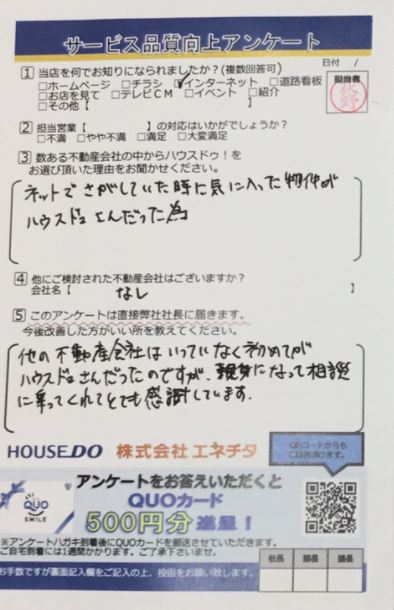 サービス品質向上アンケート
日付 /
1 当店を何でお知りになられましたか?(複数回答可)
□ホームページ □チラシ ☑インターネット □道路看板
□お店を見て □テレビCM □イベント □紹介
□その他【 】
担当者
荻野
2 担当営業【 】の対応はいかがでしょうか?
□不満 □やや不満 □満足 □大変満足
3 数ある不動産会社の中からハウスドゥ!を
お選び頂いた理由をお聞かせください。
ネットでさがしていた時に気に入った物件が
ハウスドゥさんだった為
4 他にご検討された不動産会社はございますか?
会社名【 なし 】
5 このアンケートは直接弊社社長に届きます。
今後改善した方がいい所を教えてください。
他の不動産会社はいっていなく初めてが
ハウスドゥさんだったのですが、親身になって相談
に乗ってくれてとても感謝しています.
HOUSEDO 株式会社 エネチタ
QRコードからも
ご回答頂けます。
アンケートをお答えいただくと
QUOカード
500円分 進呈!
QUO
SMILE
※アンケートハガキ到着後にQUOカードを郵送させていただきます。
ご自宅到着には1週間かかります。ご了承下さいませ。
社長 部長 課長
お手数ですが裏面記入欄をご記入の上、投函をお願い致します。